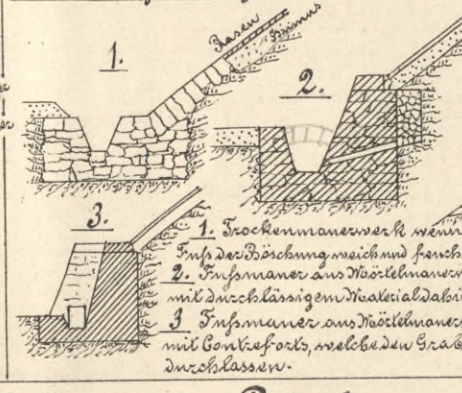 Rasen
Humus
1.
2.
3.
1. Trockenmauerwerk wenn
Fuss der Böschung weich und feuch
2. Fussmauer aus Mörtelmauerw
mit durchlässigem Material dahi
3 Fussmauer aus Mörtelmauer
mit Contreforts, welche den Gra
durchlassen.